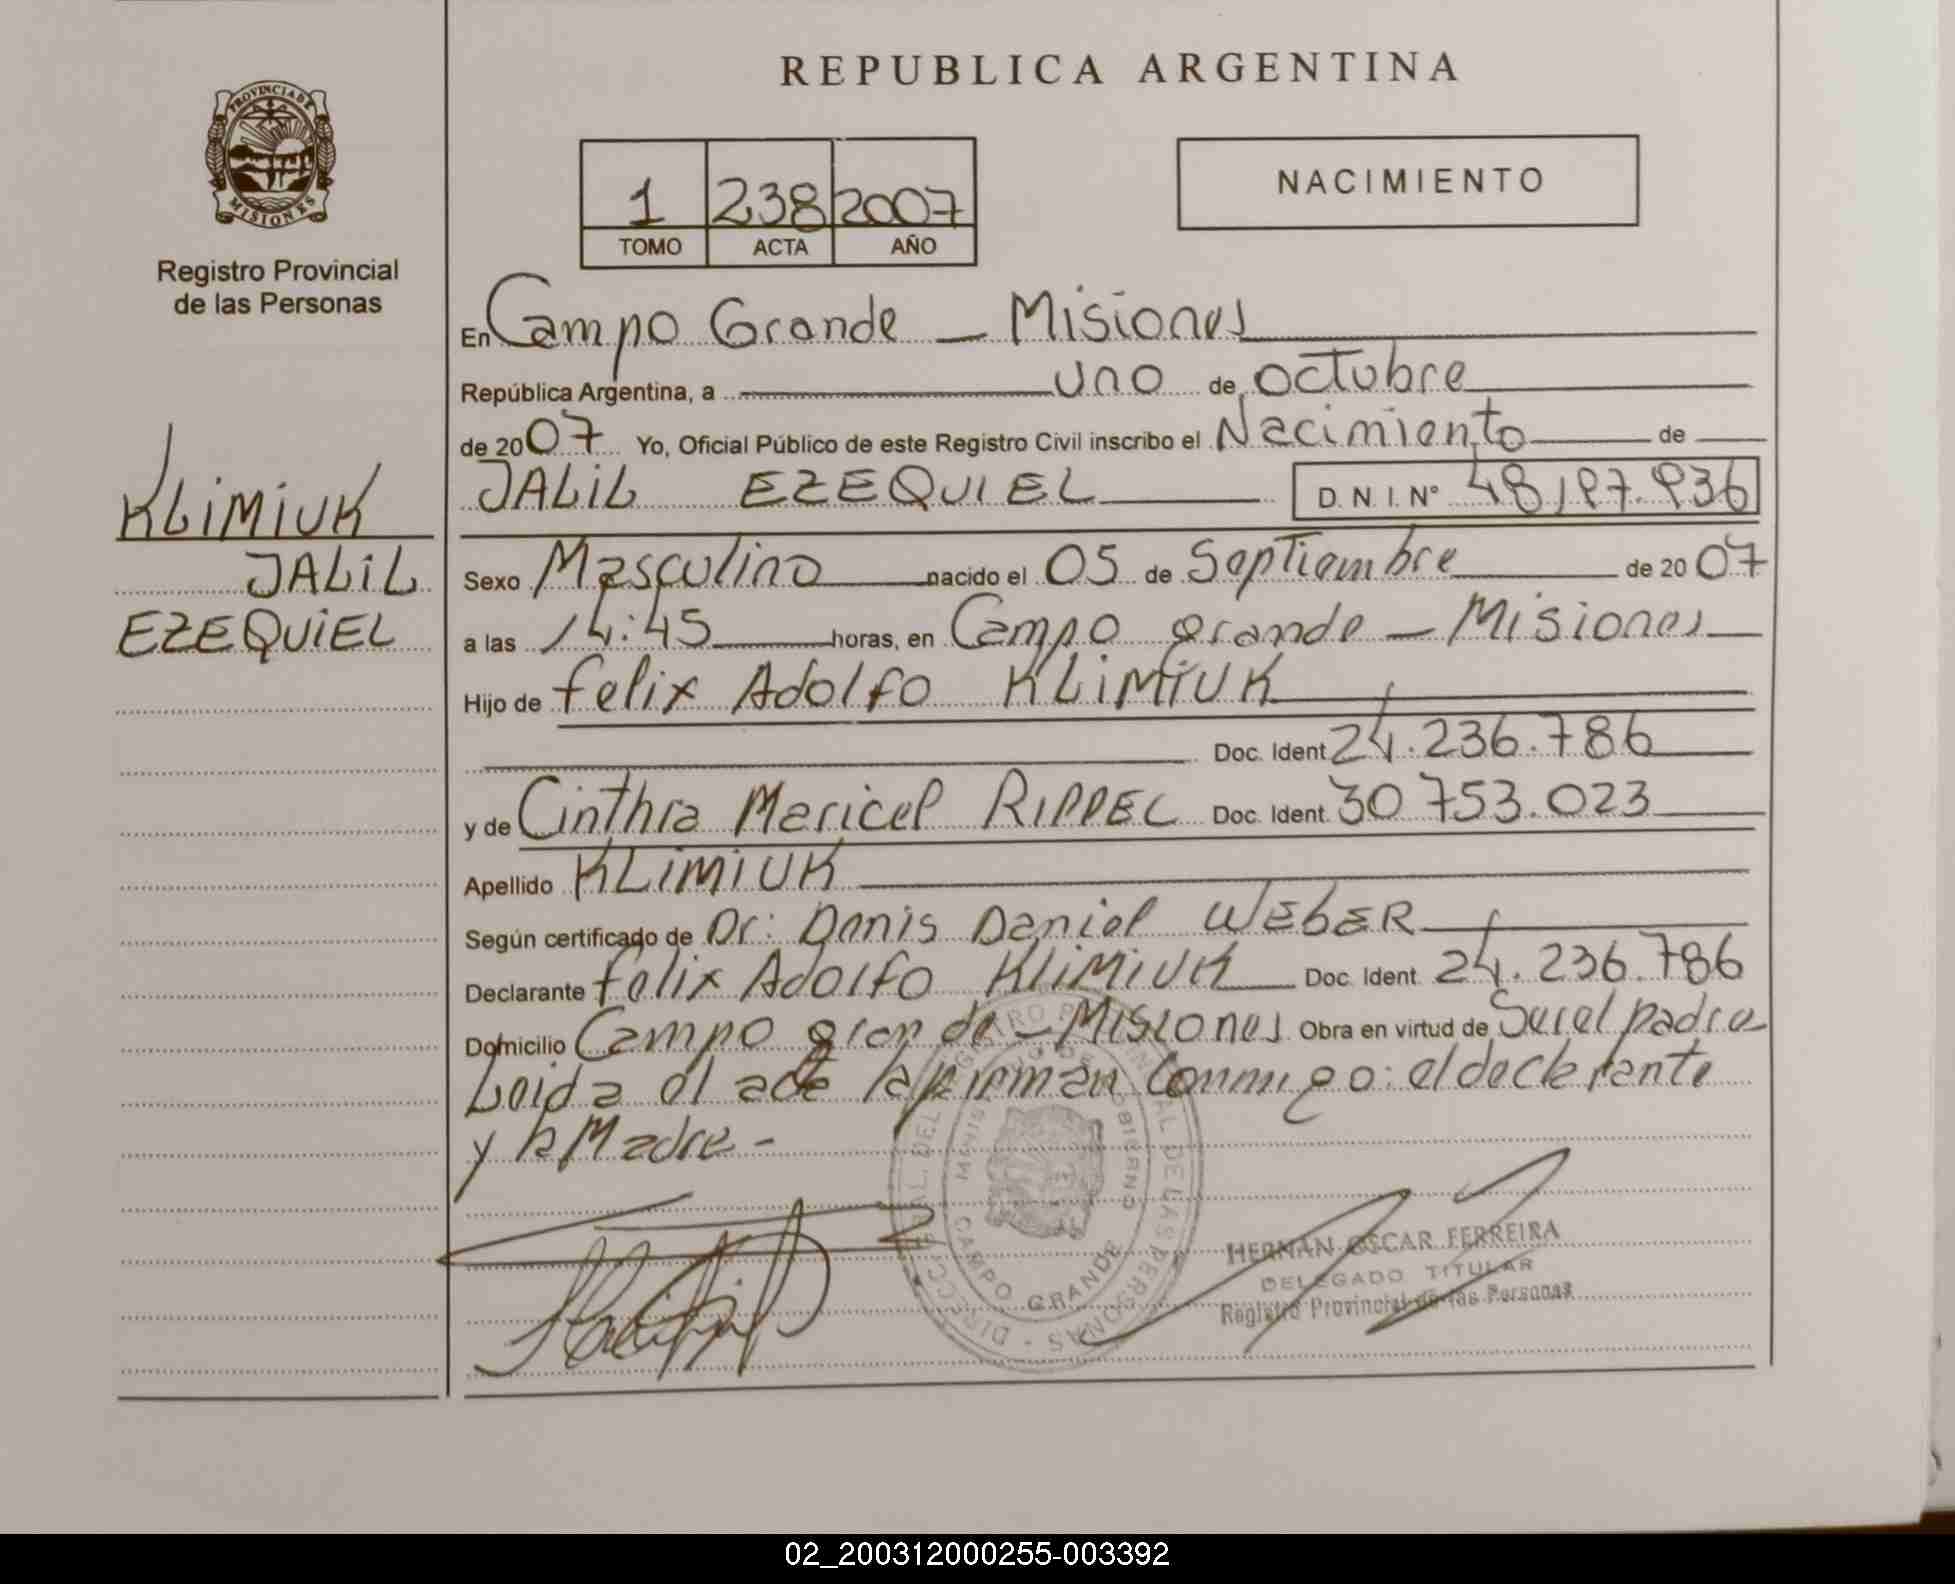 REPUBLICA ARGENTINA
PROVINCIA DE
MISIONES
Registro Provincial
de las Personas
1 238 2007
TOMO ACTA AÑO
NACIMIENTO
En Campo Grande - Misiones
República Argentina, a uno de octubre
de 2007 Yo, Oficial Público de este Registro Civil inscribo el Nacimiento de
JALIL EZEQUIEL D.N.I. Nº
KLIMIUK
JALIL
EZEQUIEL
Sexo Masculino nacido el 05 de Septiembre de 2007
a las 14:45 horas, en Campo grande - Misiones
Hijo de Felix Adolfo KLIMIUK
Doc. Ident. 24.236.786
y de Cinthia Maricel RIPPEL Doc. Ident. 30753.023
Apellido KLIMIUK
Según certificado de Dr: Denis Daniel WEBER
Declarante Felix Adolfo KLIMIUK Doc. Ident. 24.236.786
Domicilio Campo grande - Misiones Obra en virtud de Ser el padre
Leida el acta la firman conmigo: el declarante
y la Madre -
CAMPO GRANDE
HERNAN OSCAR FERREIRA
DELEGADO TITULAR
Registro Provincial de las Personas
02_200312000255-003392